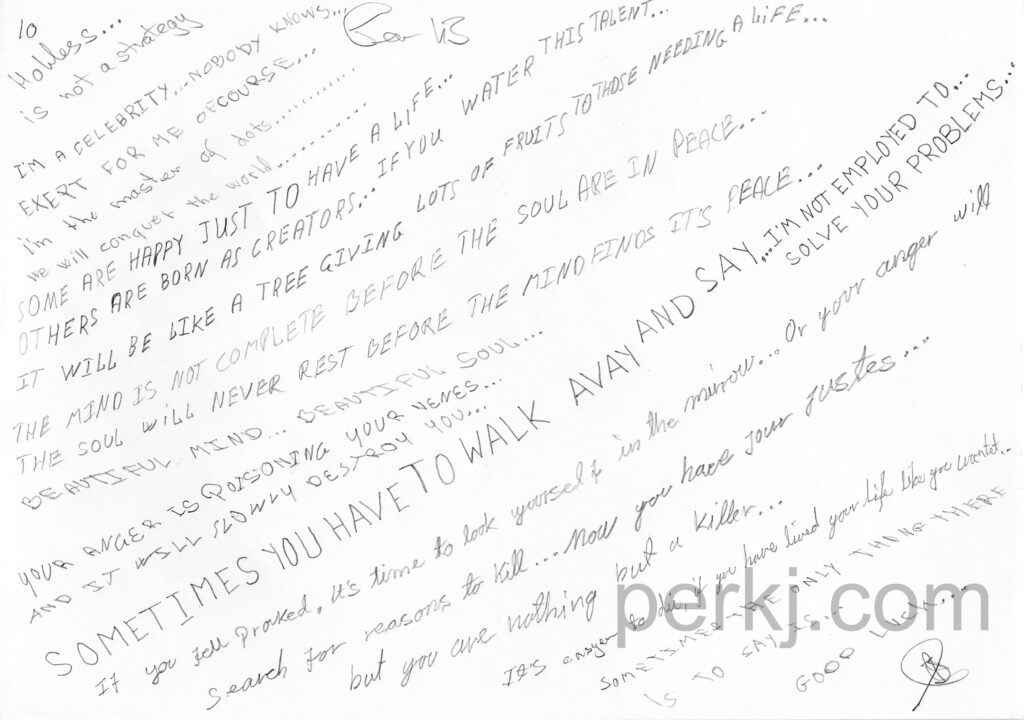 10
is not a strategy
I'M A CELEBRITY... NOBODY KNOWS...
EXEPT FOR ME OFCOURSE...
I'm the master of dots...........
We will conquer the world...........
SOME ARE HAPPY JUST TO HAVE A LIFE...
OTHERS ARE BORN AS CREATORS... IF YOU WATER THIS TALENT...
IT WILL BE LIKE A TREE GIVING LOTS OF FRUITS TO THOSE NEEDING A LIFE...
THE MIND IS NOT COMPLETE BEFORE THE SOUL ARE IN PEACE...
THE SOUL WILL NEVER REST BEFORE THE MIND FINDS IT'S PEACE...
BEAUTIFUL MIND... BEAUTIFUL SOUL...
YOUR ANGER IS POISONING YOUR VENES...
AND IT WILL SLOWLY DESTROY YOU...
SOMETIMES YOU HAVE TO WALK AVAY AND SAY,... I'M NOT EMPLOYED TO...
SOLVE YOUR PROBLEMS...
If you fell provked, it's time to look yourself in the mirrow... Or your anger will
search for reasons to kill... Now you have your justes...
but you are nothing but a killer...
It's to die, if you have lived your life like you wantet...
SOMETIMES THE ONLY THING THERE
IS TO SAY IS...
GOOD LUCK...
perkj.com